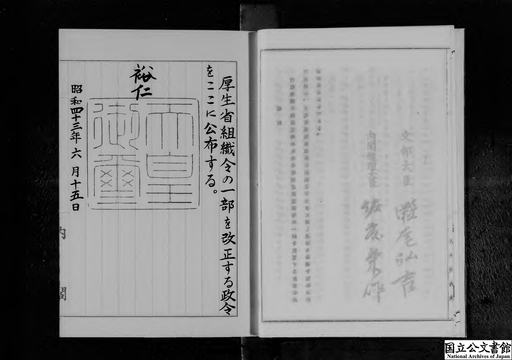 厚生省組織令の一部を改正する政令
をここに公布する。
裕仁
天皇
御璽
昭和四十三年六月十五日
内閣
文部大臣 灘尾弘吉
内閣総理大臣 佐藤榮作
国立公文書館
National Archives of Japan